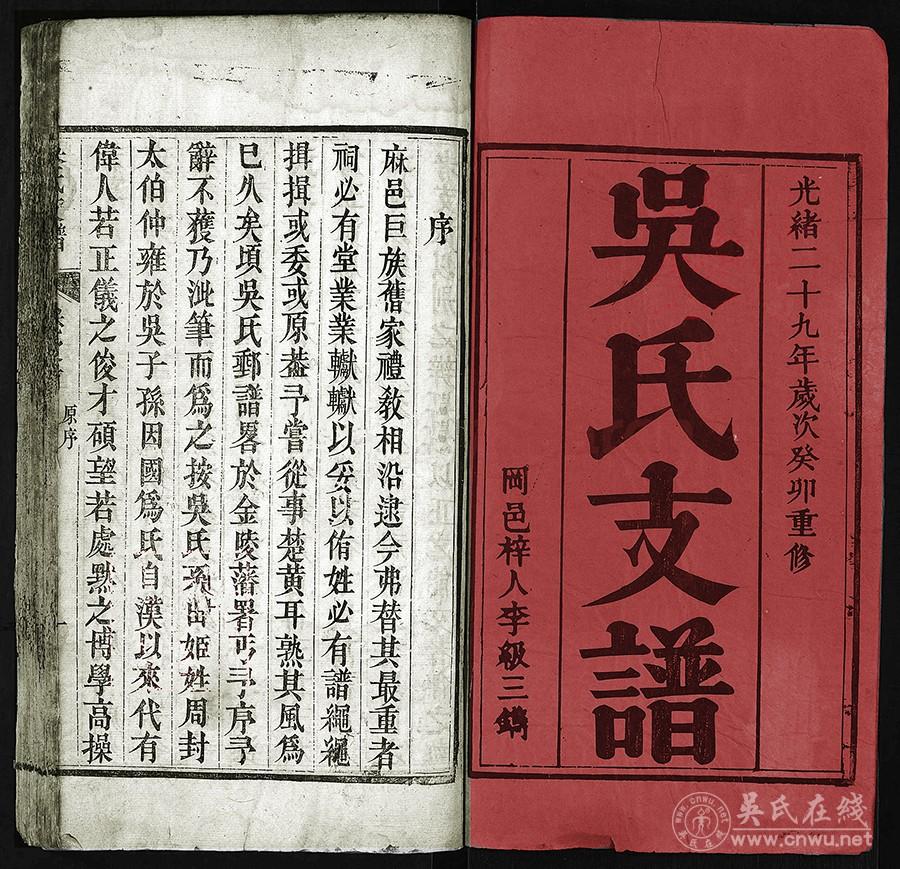 光緒二十九年歲次癸卯重修
吳氏支譜
岡邑梓人李級三鐫
序
麻邑巨族舊家禮敎相沿逮今弗替其最重者
祠必有堂業業轍轍以妥以侑姓必有譜繩繩
揖揖或委或原葢予嘗從事楚黄耳熟其風爲
巳久矣頃吳氏郵譜畧於金陵藩署丐予序予
辭不獲乃泚筆而爲之按吳氏系出姬姓周封
太伯仲雍於吳子孫因國爲氏自漢以來代有
偉人若正儀之俊才碩望若處默之博學高操
原序
一
吳氏在线
www.cnwu.net